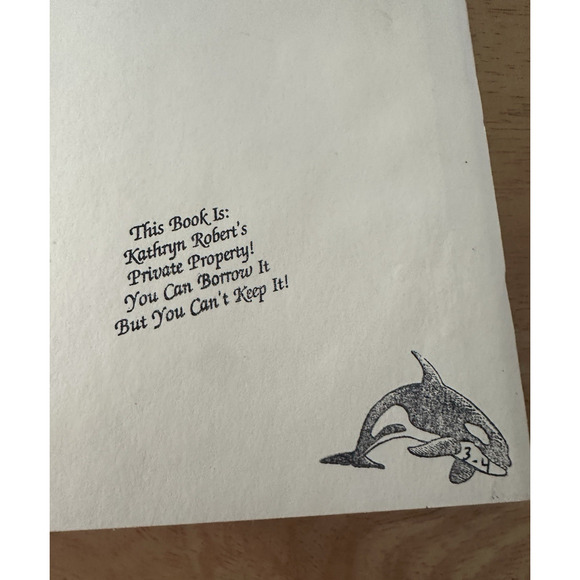 This Book Is:
Kathryn Robert's
Private Property!
You Can Borrow It
But You Can't Keep It!
3-4